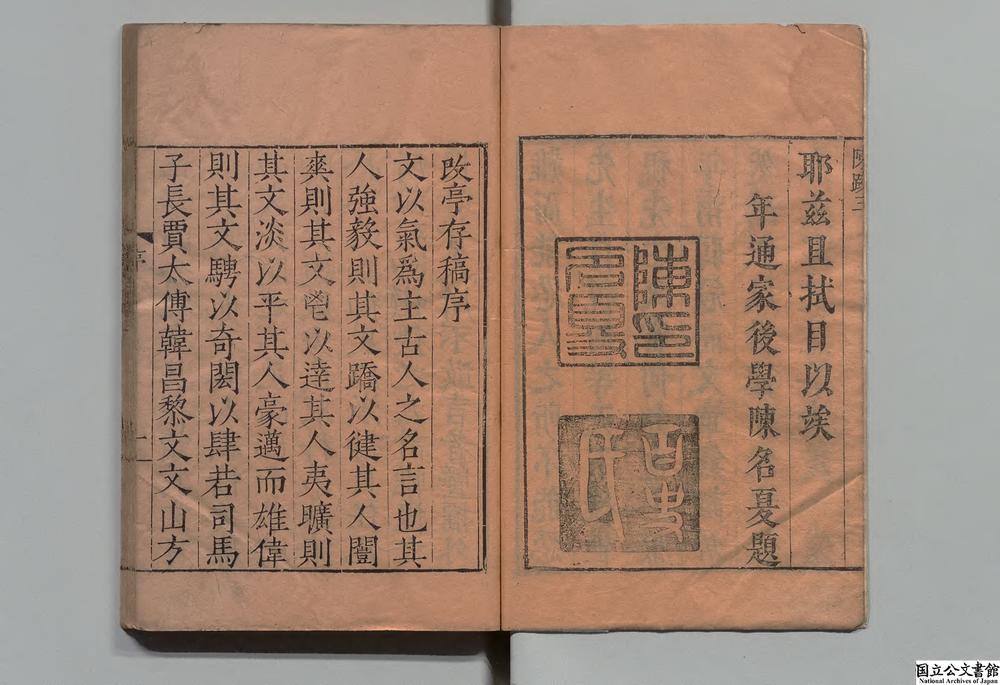 陳跋三
耶兹且拭目以竢
年通家後學陳名夏題
陳印名夏
百史氏
攺亭存稿序
文以氣爲主古人之名言也其
人強毅則其文蹻以徤其人闓
爽則其文鬯以逹其人夷曠則
其文淡以平其人豪邁而雄偉
則其文騁以奇閎以肆若司馬
子長賈太傅韓昌黎文文山方
序
一
国立公文書館
National Archives of Japan